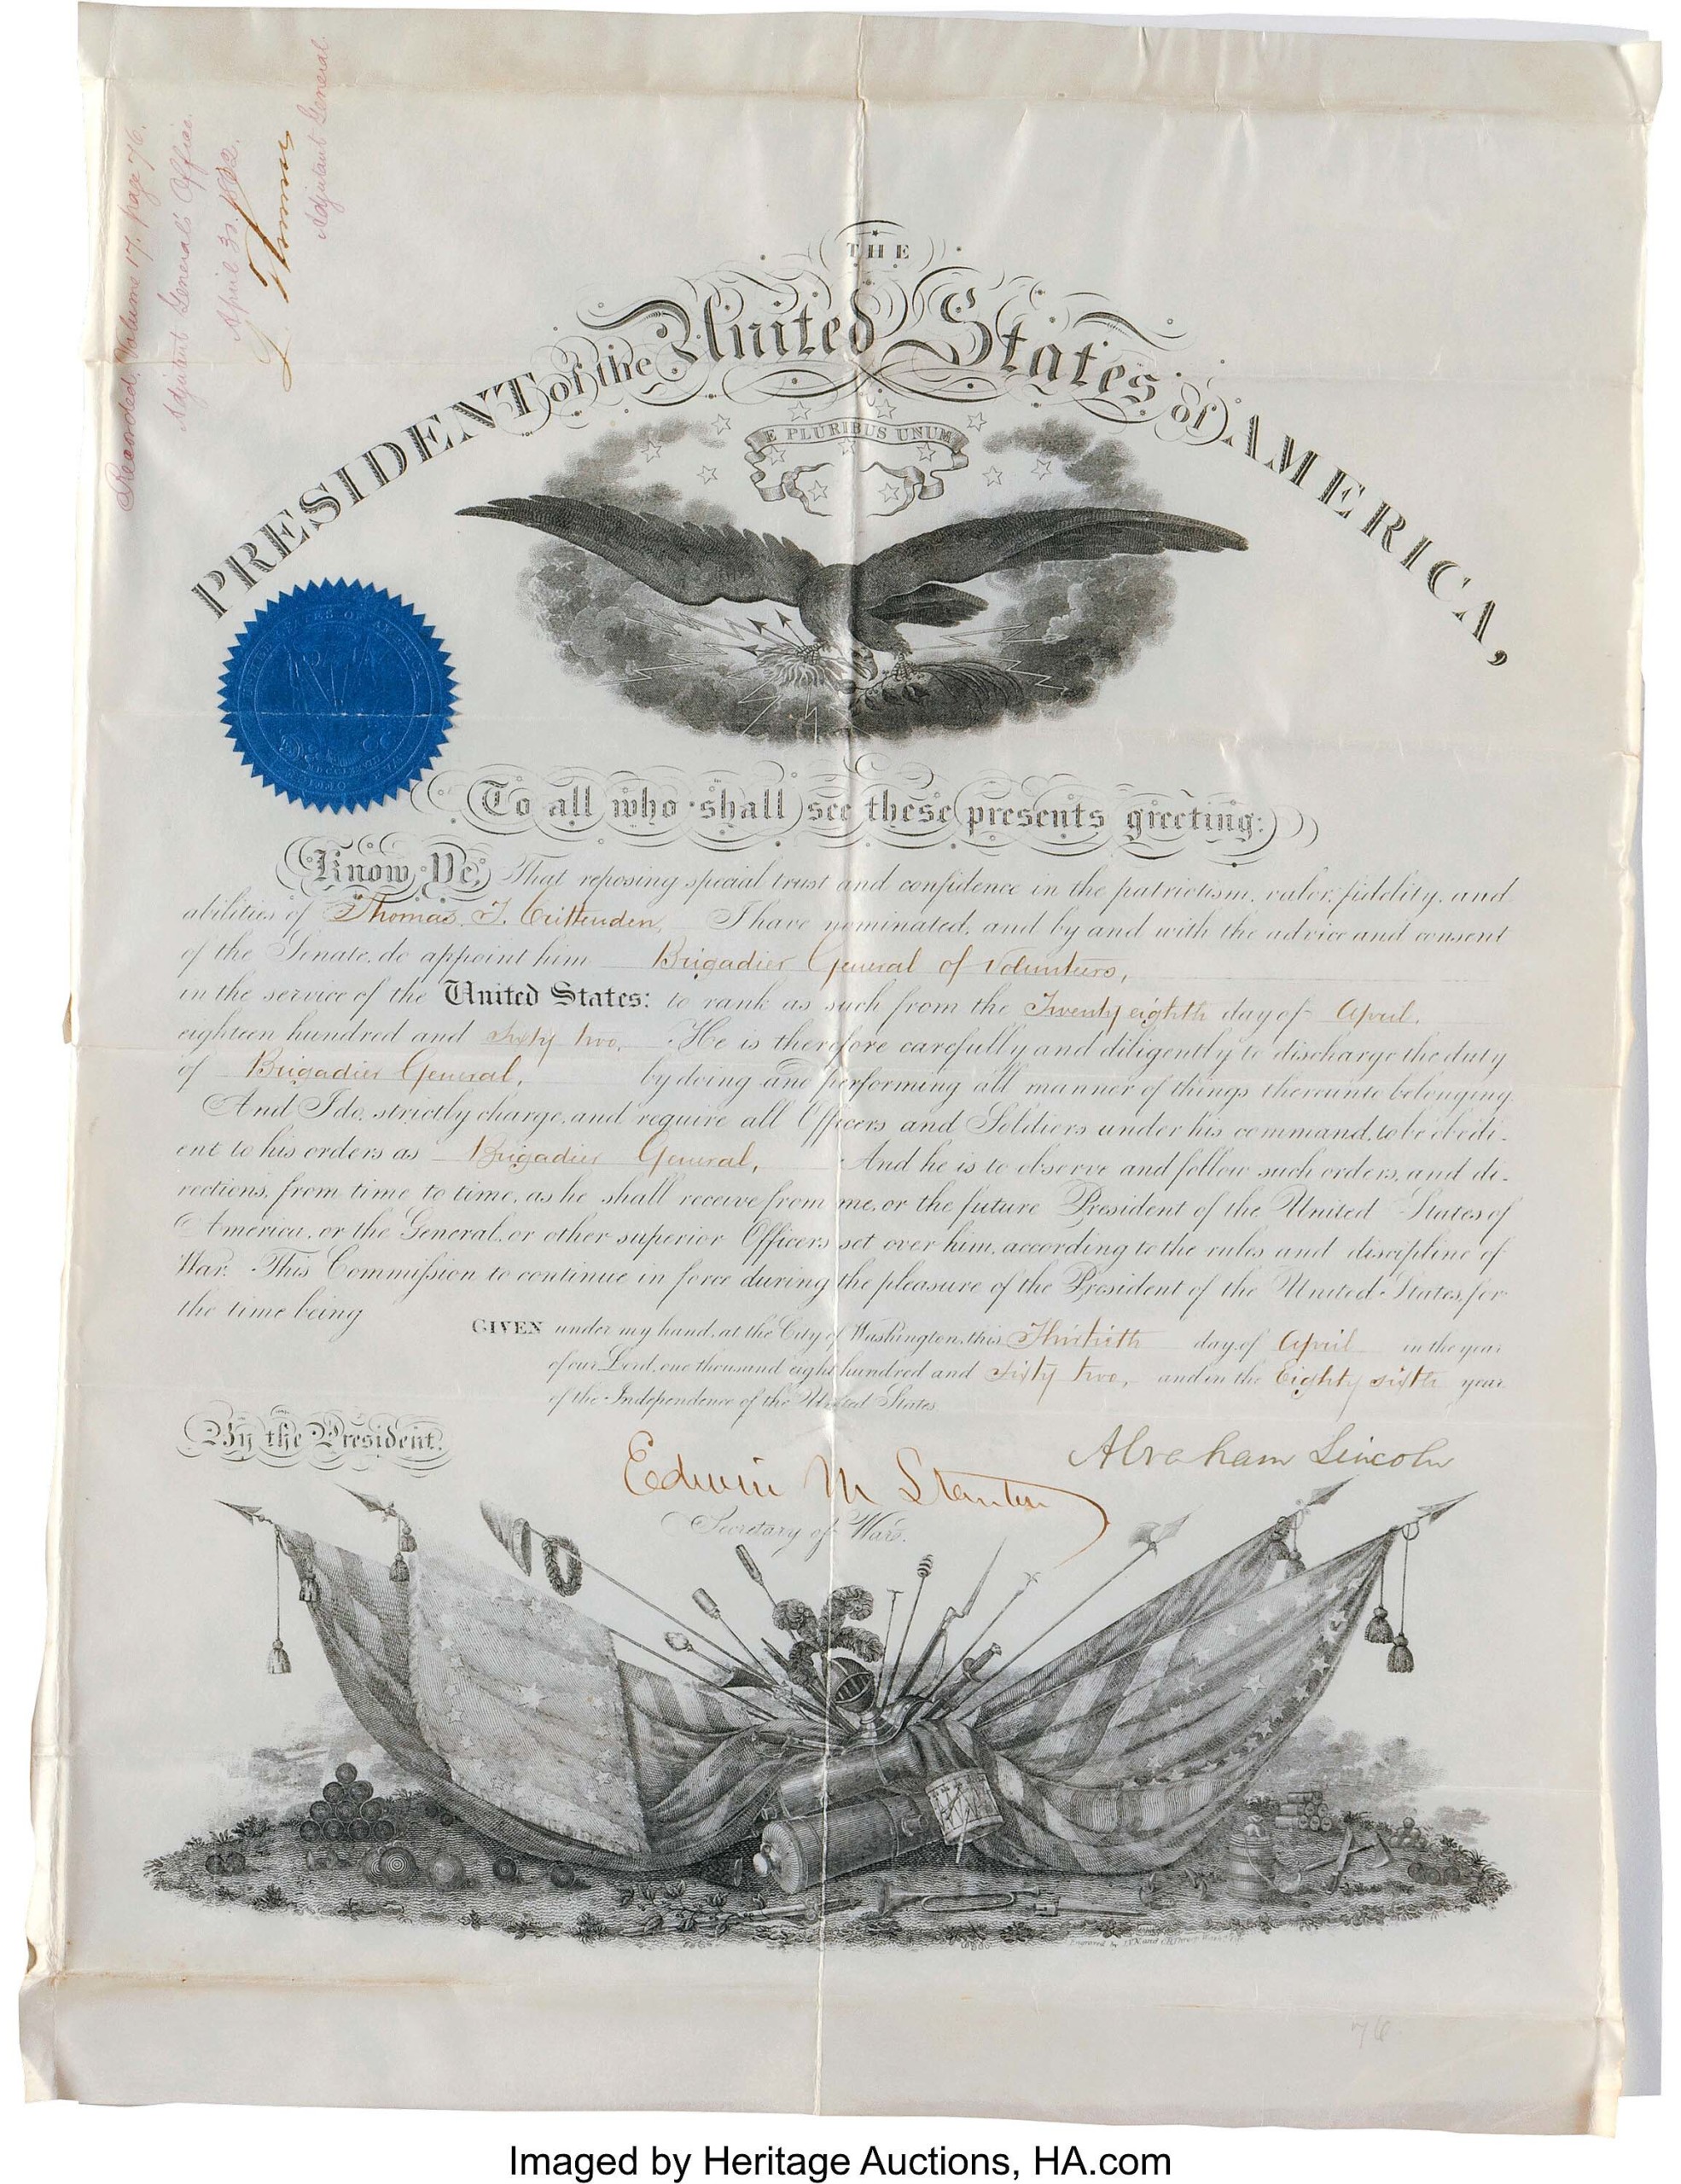 Recorded, Volume 17. page 76.
Adjutant General's Office.
April 30. 1862.
L. Thomas
Adjutant General.
THE
PRESIDENT of the United States of AMERICA,
E PLURIBUS UNUM
To all who shall see these presents greeting:
Know Ye, That reposing special trust and confidence in the patriotism, valor, fidelity, and
abilities of Thomas T. Crittenden, I have nominated, and by and with the advice and consent
of the Senate, do appoint him Brigadier General of Volunteers,
in the service of the United States: to rank as such from the Twenty eighth day of April,
eighteen hundred and sixty two. He is therefore carefully and diligently to discharge the duty
of Brigadier General, by doing and performing all manner of things thereunto belonging.
And I do, strictly charge, and require all Officers and Soldiers under his command, to be obedi-
ent to his orders as Brigadier General, And he is to observe and follow such orders, and di-
rections, from time to time, as he shall receive from me, or the future President of the United States of
America, or the General, or other superior Officers set over him, according to the rules and discipline of
War. This Commission to continue in force during the pleasure of the President of the United States, for
the time being
GIVEN under my hand, at the City of Washington, this Thirtieth day of April in the year
of our Lord, one thousand eight hundred and sixty two, and in the Eighty sixth year
of the Independence of the United States.
By the President.
Abraham Lincoln
Edwin M Stanton
Secretary of War.
76
Imaged by Heritage Auctions, HA.com